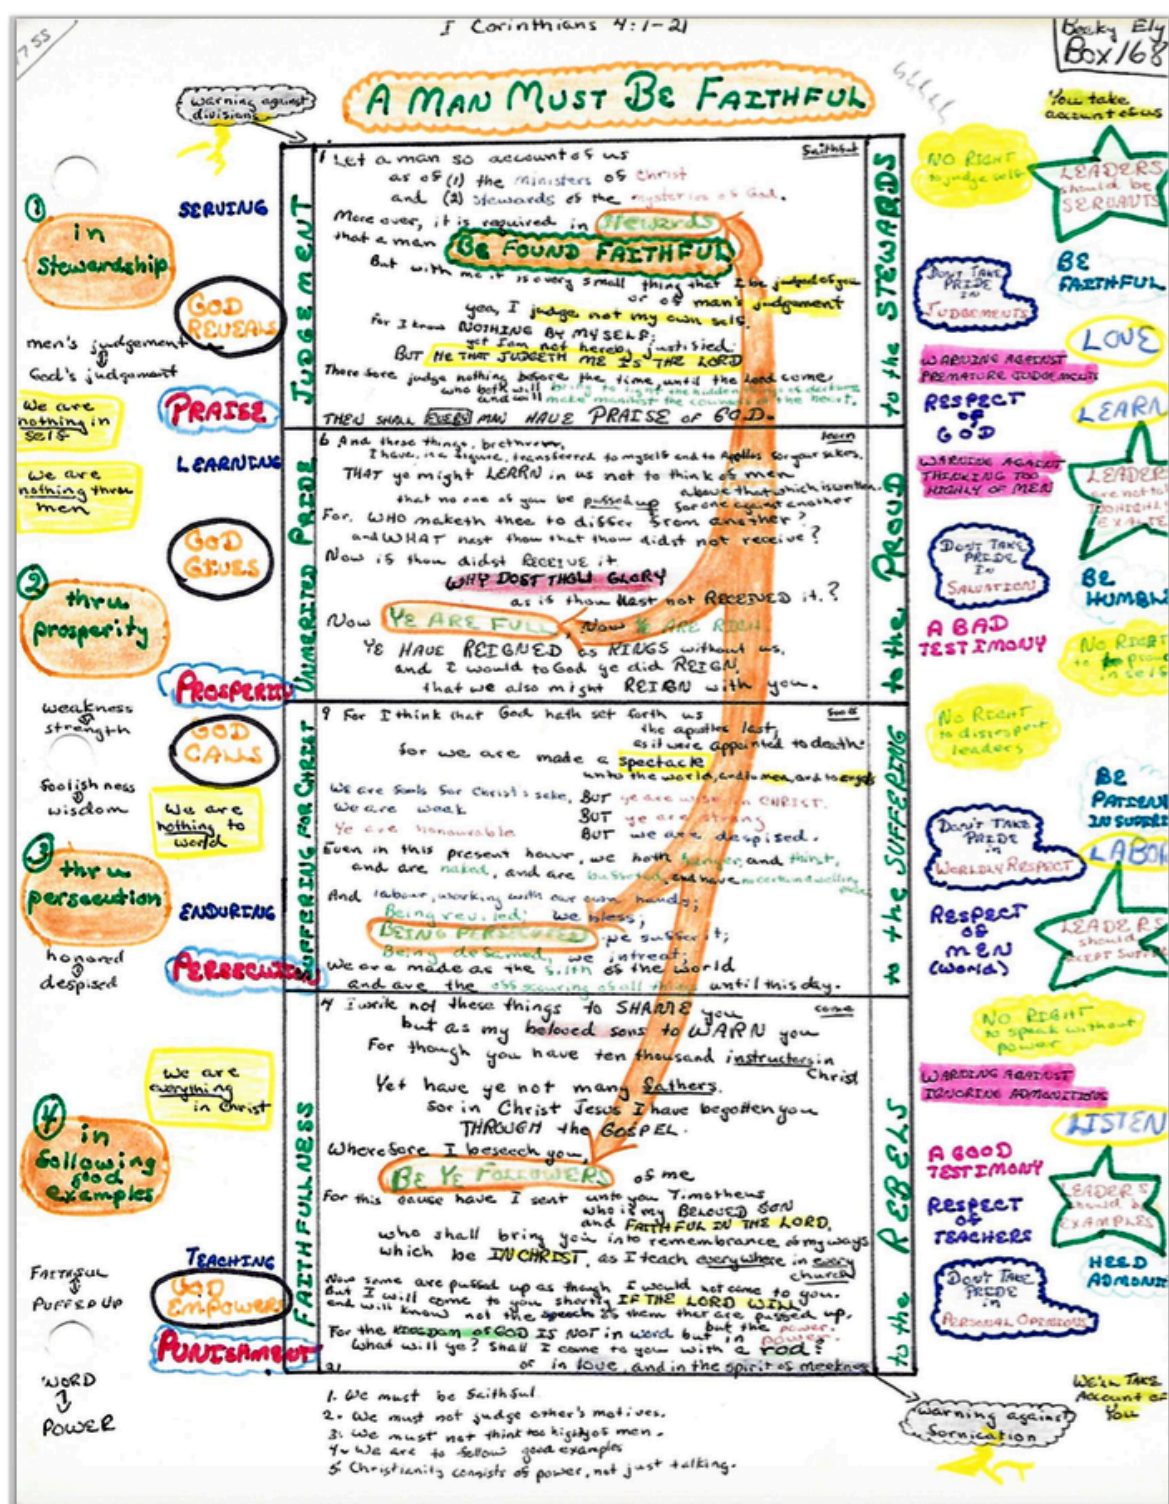 I Corinthians 4:1-21
Becky Ely
Box 168
A MAN MUST BE FAITHFUL
warning against
divisions
You take
account of us
1
in
Stewardship
SERVING
GOD
REVEALS
men's judgement
God's judgement
PRAISE
We are
nothing in
self
LEARNING
We are
nothing thru
men
GOD
GIVES
2
thru
prosperity
PROSPERITY
weakness
strength
GOD
CALLS
foolishness
wisdom
We are
nothing to
world
3
thru
persecution
ENDURING
honored
despised
PERSECUTION
We are
everything
in Christ
4
in
following
good
examples
TEACHING
FAITHFUL
PUFFED UP
GOD
EMPOWERS
PUNISHMENT
WORD
POWER
JUDGEMENT
UNMARITED PRIDE
SUFFERING FOR CHRIST
FAITHFULNESS
1 Let a man so account of us
faithful
as of (1) the ministers of Christ
and (2) stewards of the mysteries of God.
More over, it is required in stewards
that a man BE FOUND FAITHFUL
But with me it is every small thing that I be judged of you
or of man's judgement
yea, I judge not my own self.
For I know NOTHING BY MYSELF;
yet I am not hereby justified:
BUT HE THAT JUDGETH ME IS THE LORD
Therefore judge nothing before the time, until the Lord come
who both will bring to light the hidden things of darkness
and will make manifest the counsels of the heart.
THEN SHALL EVERY MAN HAVE PRAISE OF GOD.
6 And these things, brethren,
learn
I have, in a figure, transferred to myself and to Apollos for your sakes.
THAT ye might LEARN in us not to think of men
above that which is written.
that no one of you be puffed up for one against another
For, WHO maketh thee to differ from another?
and WHAT hast thou that thou didst not receive?
Now if thou didst RECEIVE it
WHY DOST THOU GLORY
as if thou Hast not RECEIVED it.?
Now YE ARE FULL, Now YE ARE RICH
YE HAVE REIGNED as KINGS without us.
and I would to God ye did REIGN,
that we also might REIGN with you.
9 For I think that God hath set forth us
fools
the apostles last;
as it were appointed to death:
for we are made a spectacle
unto the world, and to men, and to angels
We are fools for Christ's sake, BUT ye are wise in CHRIST.
We are weak BUT ye are strong
Ye are honourable BUT we are despised.
Even in this present hour, we both hunger, and thirst,
and are naked, and are buffeted, and have no certain dwelling
place
And labour, working with our own hands;
Being reviled; we bless;
BEING PERSECUTED we suffer it;
Being defamed, we intreat;
We are made as the filth of the world
and are the offscouring of all things until this day.
14 I write not these things to SHAME you
come
but as my beloved sons to WARN you
For though you have ten thousand instructors in
Christ
Yet have ye not many fathers.
for in Christ Jesus I have begotten you
THROUGH the GOSPEL.
Wherefore I beseech you,
BE YE FOLLOWERS of me
For this cause have I sent unto you Timotheus
who is my BELOVED SON
and FAITHFUL IN THE LORD,
who shall bring you into remembrance of my ways
which be IN CHRIST, as I teach everywhere in every
church
Now some are puffed up as though I would not come to you.
But I will come to you shortly IF THE LORD WILL
and will know, not the speech of them that are puffed up.
but the power.
For the KINGDOM of GOD IS NOT in word but in power.
What will ye? Shall I come to you with a rod?
21 or in love, and in the spirit of meekness
to the STEWARDS
to the PROUD
to the SUFFERING
to the REBELS
NO RIGHT
to judge self
LEADERS
should be
SERVANTS
DON'T TAKE
PRIDE
IN
JUDGEMENTS
BE
FAITHFUL
LOVE
WARNING AGAINST
PREMATURE JUDGEMENTS
RESPECT
OF
GOD
LEARN
WARNING AGAINST
THINKING TOO
HIGHLY OF MEN
LEADERS
are not to
be highly
EXALTED
DON'T TAKE
PRIDE
IN
SALVATION
BE
HUMBLE
A BAD
TESTIMONY
NO RIGHT
to be proud
in self
NO RIGHT
to disrespect
leaders
BE
PATIENT
IN SUFFERI
DON'T TAKE
PRIDE
in
WORLDLY RESPECT
LABOR
RESPECT
OF
MEN
(world)
LEADERS
should
ACCEPT SUFFER
NO RIGHT
to speak without
power
WARNING AGAINST
IGNORING ADMONITIONS
LISTEN
A GOOD
TESTIMONY
RESPECT
OF
TEACHERS
LEADERS
should be
EXAMPLES
DON'T TAKE
PRIDE
in
PERSONAL OPINIONS
HEED
ADMONIT
WE'LL TAKE
Account of
You
warning against
fornication
1. We must be faithful.
2. We must not judge other's motives.
3. We must not think too highly of men.
4. We are to follow good examples
5 Christianity consists of power, not just talking.